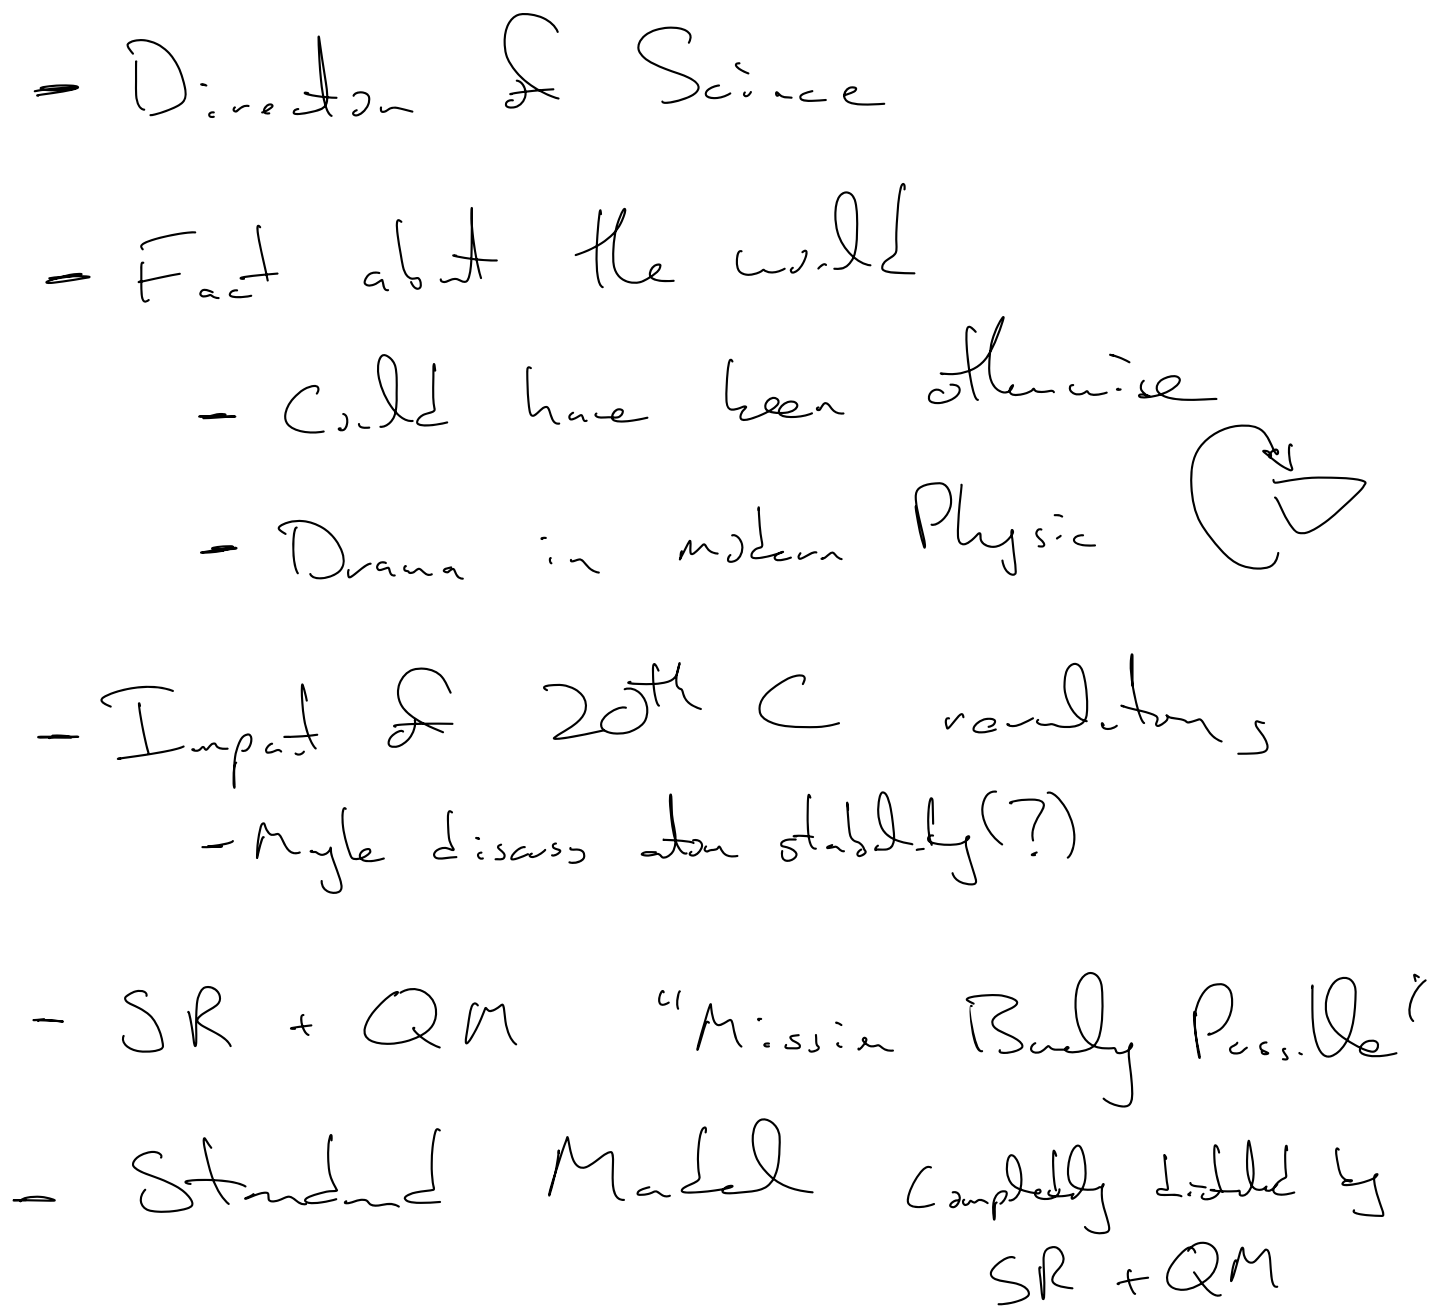 - Direction of Science
- Fact about the world
- Could have been otherwise
- Drama in modern Physic
- Impact of 20th C revolutions
- Maybe discuss atom stability (?)
- SR + QM "Mission Barely Possible"
- Standard Model Completely dictated by
SR + QM